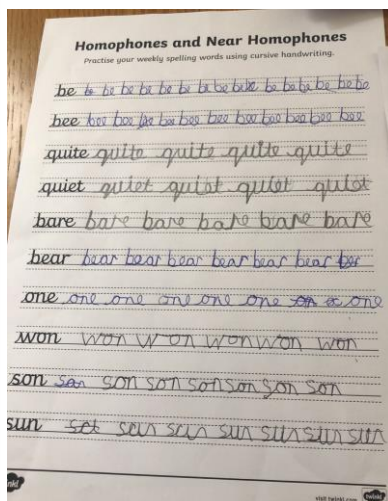 Homophones and Near Homophones
Practise your weekly spelling words using cursive handwriting.
be be be be be be be be be be be be be be be
bee bee bee bee bee bee bee bee bee bee bee bee
quite quite quite quite quite
quiet quiet quiet quiet quiet
bare bare bare bare bare bare
bear bear bear bear bear bear bear
one one one one one one one
won won won won won won
son son son son son son son
sun sun sun sun sun sun
visit twinkl.com